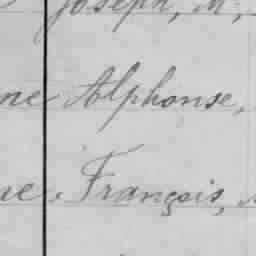 Joseph, M,
ne Alphonse,
ne, François,